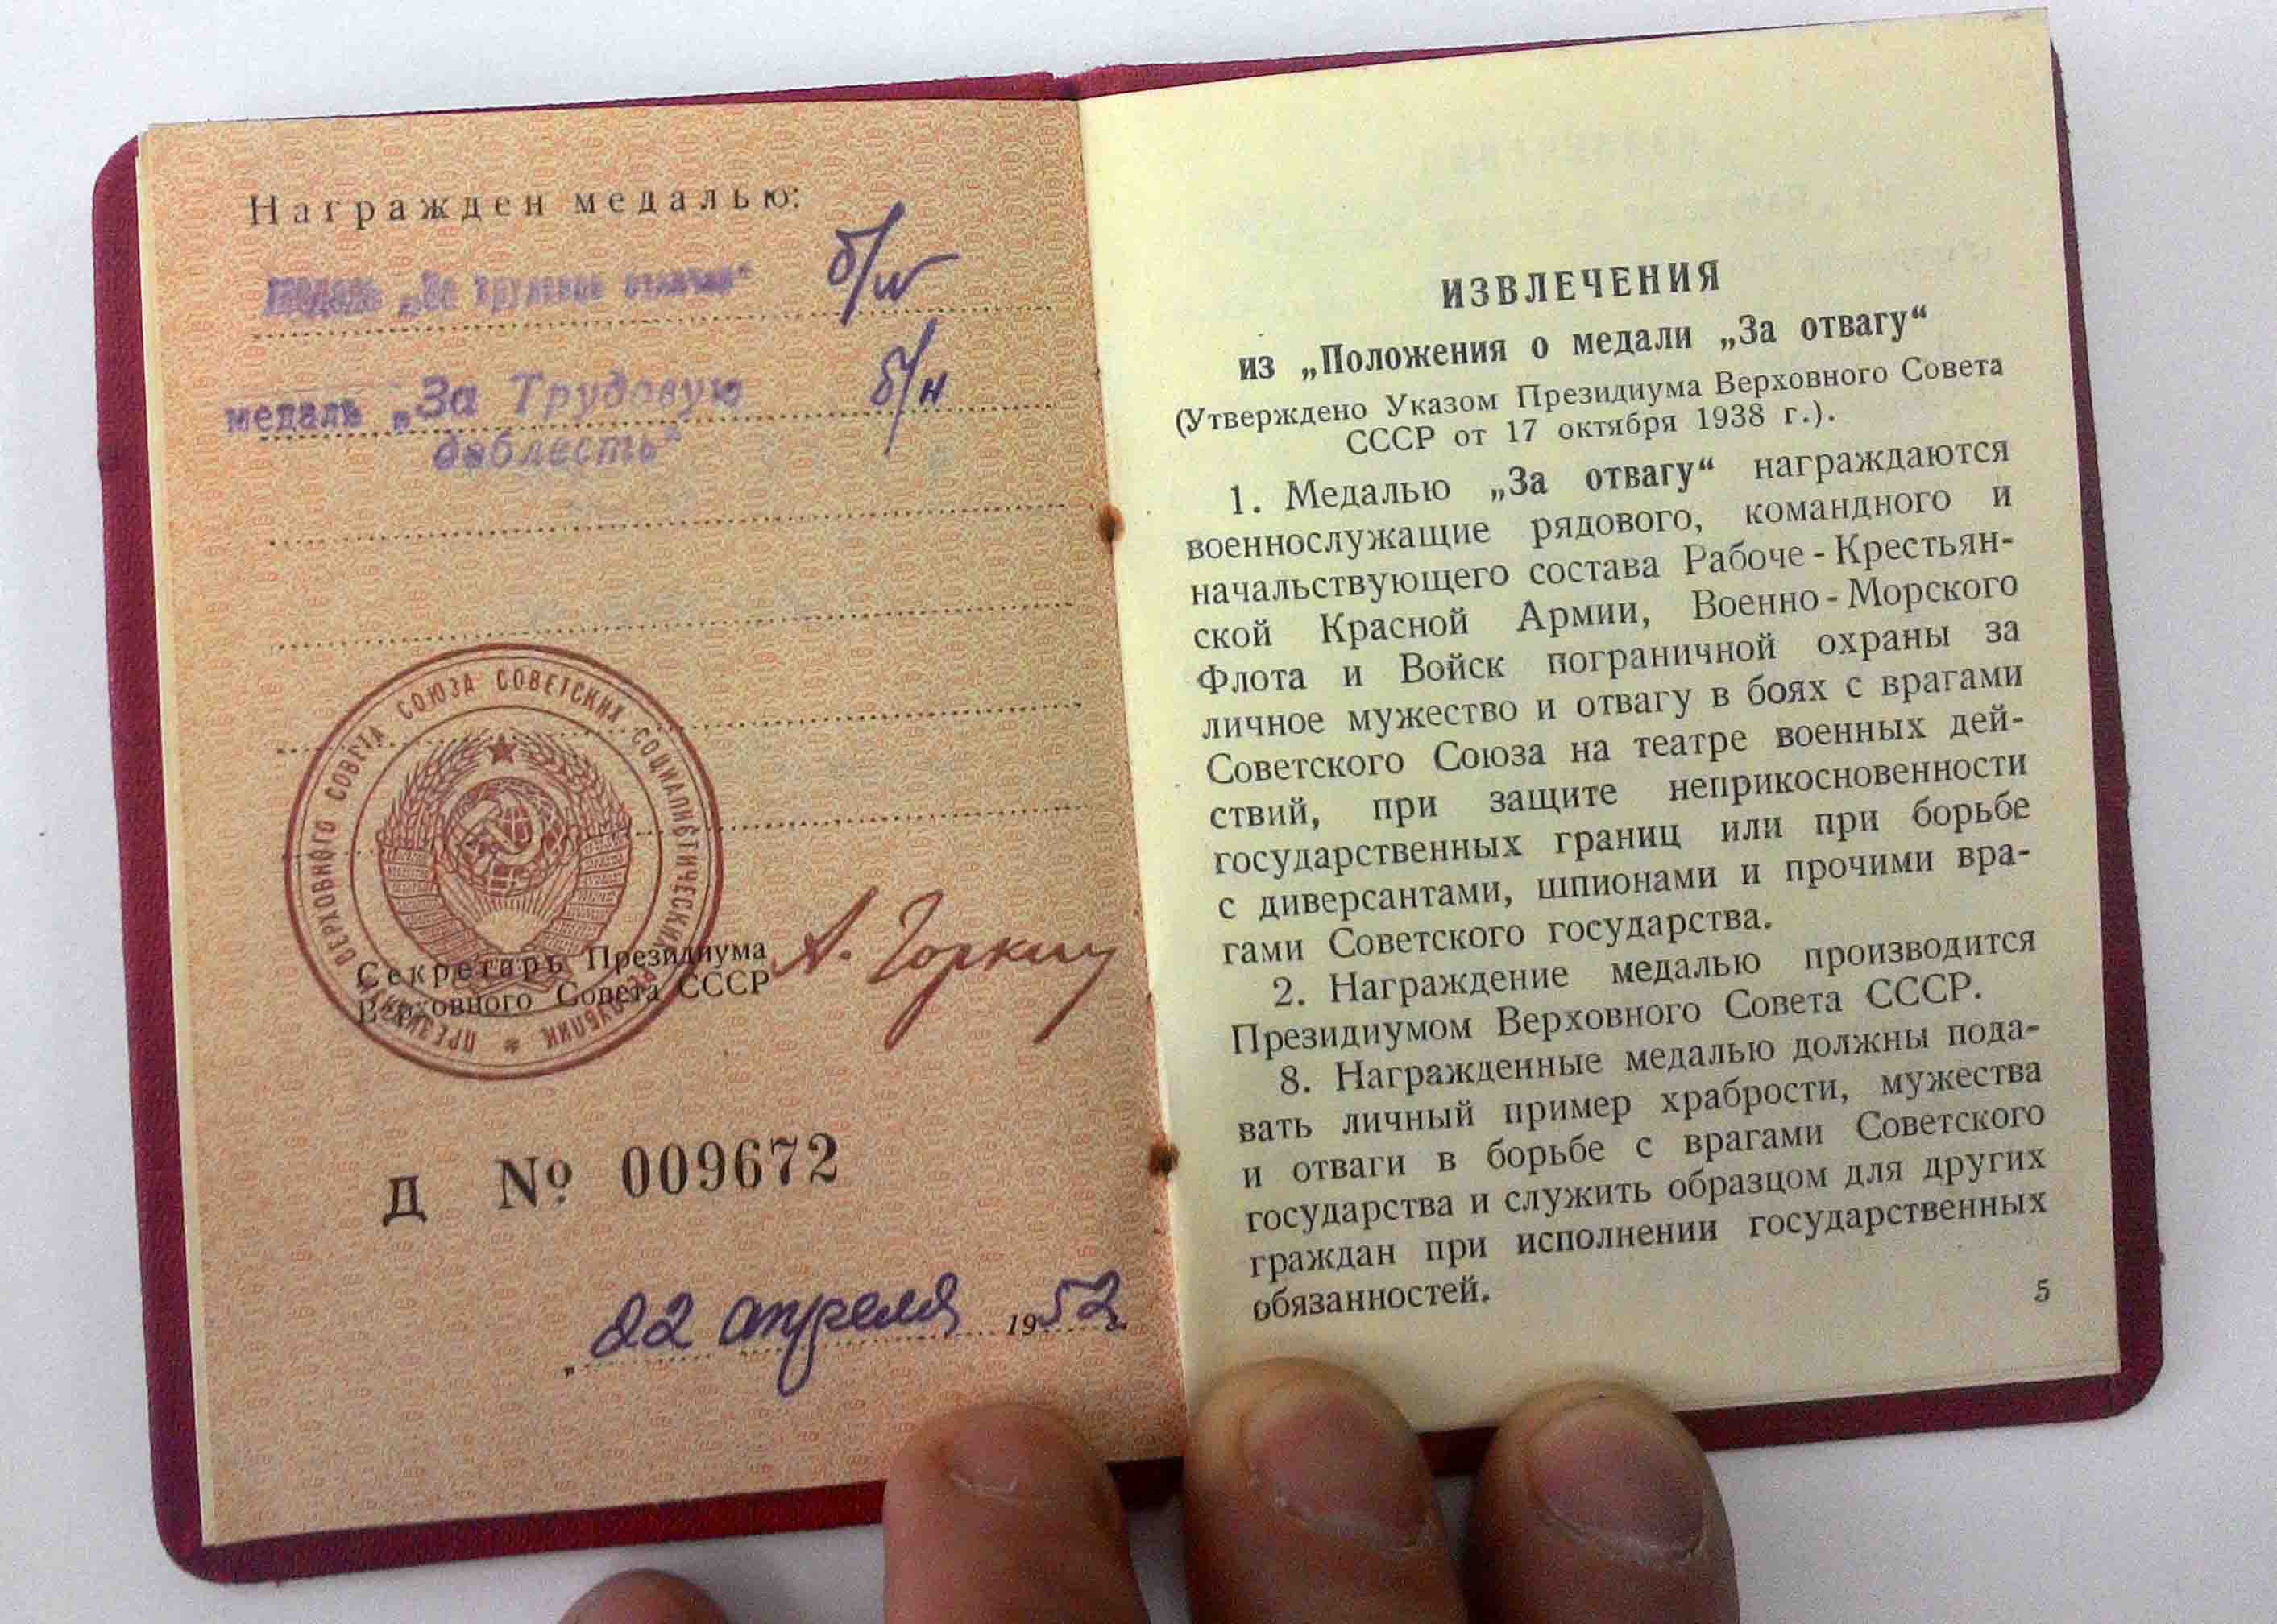 Награжден медалью:
медаль „За трудовое отличие“ б/н
медаль „За Трудовую б/н
доблесть“
ПРЕЗИДИУМ ВЕРХОВНОГО СОВЕТА СОЮЗА СОВЕТСКИХ СОЦИАЛИСТИЧЕСКИХ РЕСПУБЛИК *
Секретарь Президиума
Верховного Совета СССР
А. Горкин
Д № 009672
„22 апреля 1952
ИЗВЛЕЧЕНИЯ
из „Положения о медали „За отвагу“
(Утверждено Указом Президиума Верховного Совета
СССР от 17 октября 1938 г.).
1. Медалью „За отвагу“ награждаются
военнослужащие рядового, командного и
начальствующего состава Рабоче-Крестьян-
ской Красной Армии, Военно-Морского
Флота и Войск пограничной охраны за
личное мужество и отвагу в боях с врагами
Советского Союза на театре военных дей-
ствий, при защите неприкосновенности
государственных границ или при борьбе
с диверсантами, шпионами и прочими вра-
гами Советского государства.
2. Награждение медалью производится
Президиумом Верховного Совета СССР.
8. Награжденные медалью должны пода-
вать личный пример храбрости, мужества
и отваги в борьбе с врагами Советского
государства и служить образцом для других
граждан при исполнении государственных
обязанностей.
5